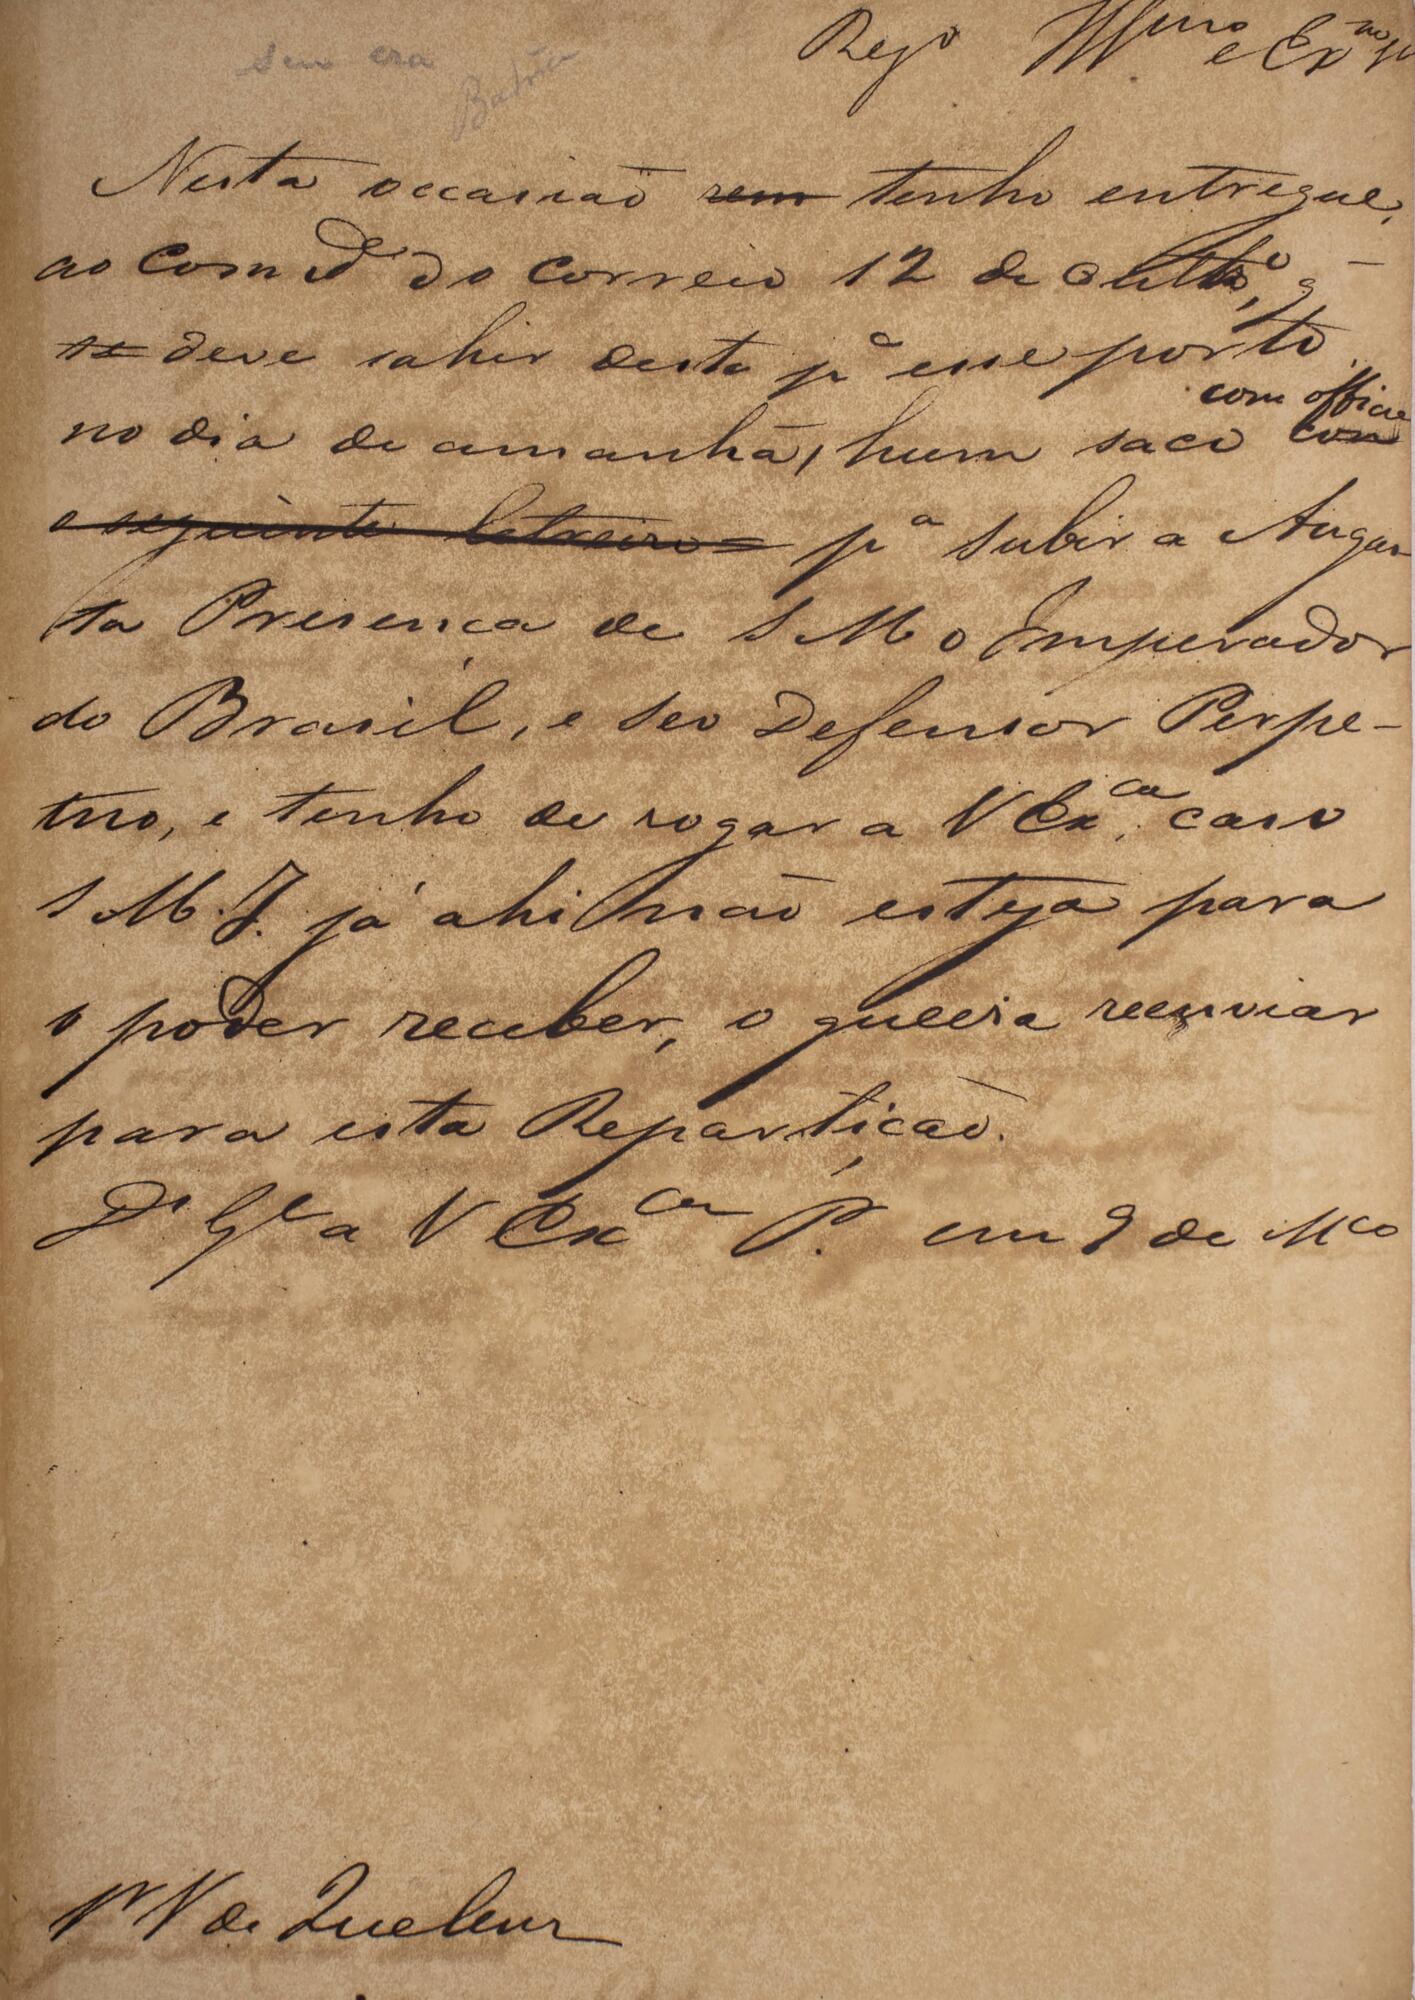 sem era
Reg.º Illmo e Exmo Sr
Nesta occasião rem tenho entregue,
ao Comde do Correio 12 de Outbro, q
se deve sahir desta pa esse porto
no dia de amanhã, hum saco com com officios
o seguinte letreiro = pa subir a Augus
ta Presença de S M o Imperador
do Brasil, e seo Defensor Perpe-
tuo, e tenho de rogar a V Exca. caso
S M. I. já ahi não esteja para
o poder receber, o queira reenviar
para esta Repartição.
Ds Ge a V Exca P. em 9 de Mço
Sr V de Queluz